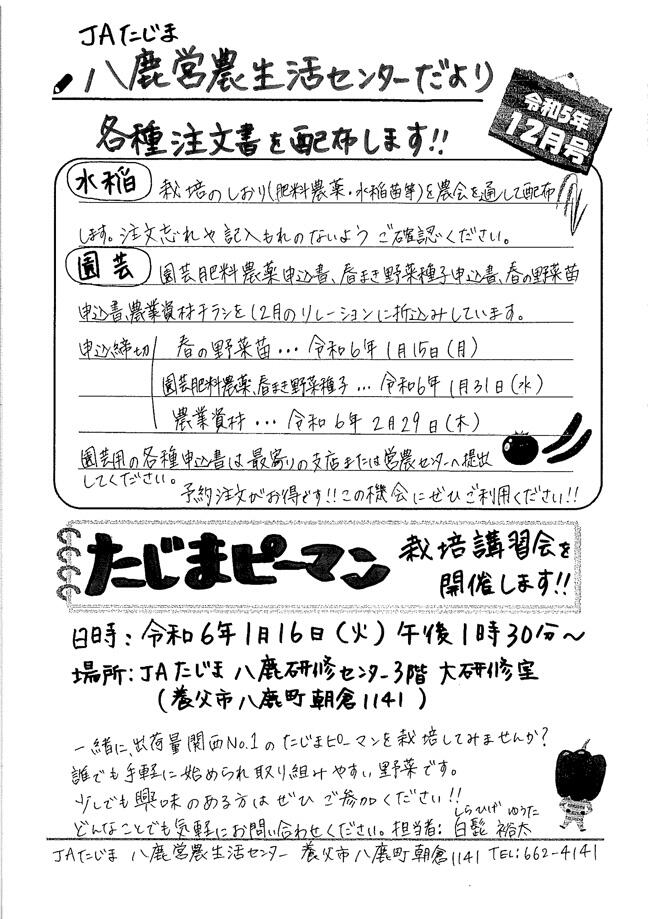 JAたじま
八鹿営農生活センターだより
令和5年
12月号
各種注文書を配布します!!
水稲 栽培のしおり(肥料農薬・水稲苗等)を農会を通して配布
します。注文忘れや記入もれのないようご確認ください。
園芸 園芸肥料農薬申込書、春まき野菜種子申込書、春の野菜苗
申込書、農業資材チラシを12月のリレーションに折込みしています。
申込締切 春の野菜苗・・・令和6年1月15日(月)
園芸肥料農薬、春まき野菜種子・・・令和6年1月31日(水)
農業資材・・・令和6年2月29日(木)
園芸用の各種申込書は最寄りの支店または営農センターへ提出
してください。
予約注文がお得です!!この機会にぜひご利用ください!!
たじまピーマン 栽培講習会を
開催します!!
日時:令和6年1月16日(火)午後1時30分~
場所:JAたじま 八鹿研修センター3階 大研修室
(養父市八鹿町朝倉1141)
一緒に、出荷量関西No.1のたじまピーマンを栽培してみませんか?
誰でも手軽に始められ取り組みやすい野菜です。
少しでも興味のある方はぜひご参加ください!!
どんなことでも気軽にお問い合わせください。担当者:白髭 裕太
しらひげ ゆうた
JAたじま 八鹿営農生活センター 養父市八鹿町朝倉1141 TEL:662-4141